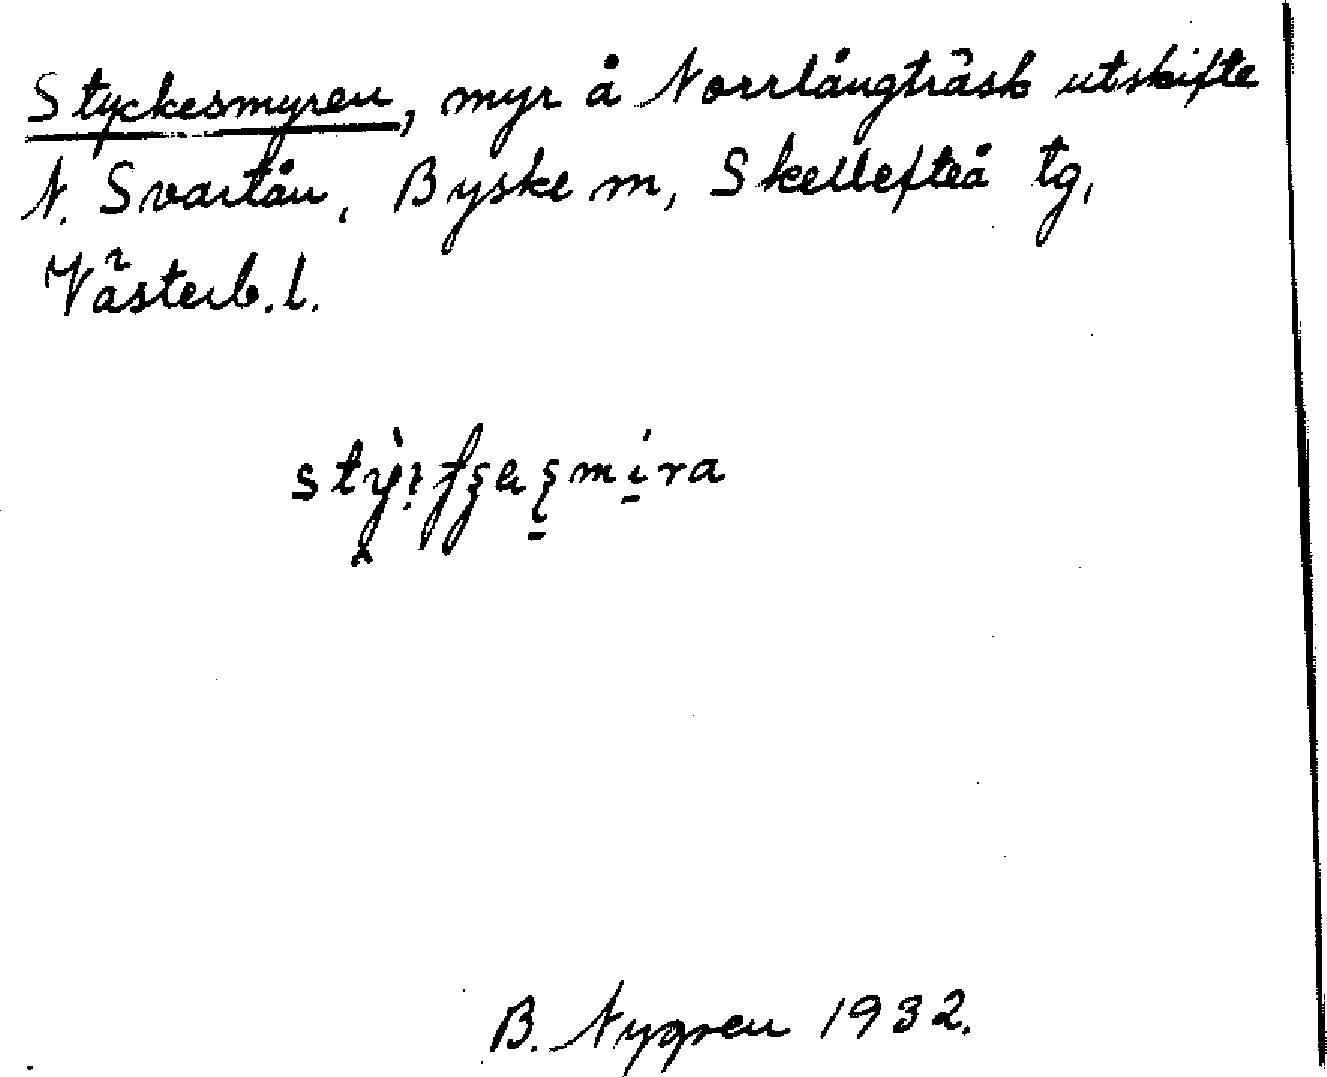 Styckesmyren, myr å Norrlångträsk utskifte
N. Svartån, Byske sn, Skellefteå tg,
Västerb. l.
B. Nygren 1932.